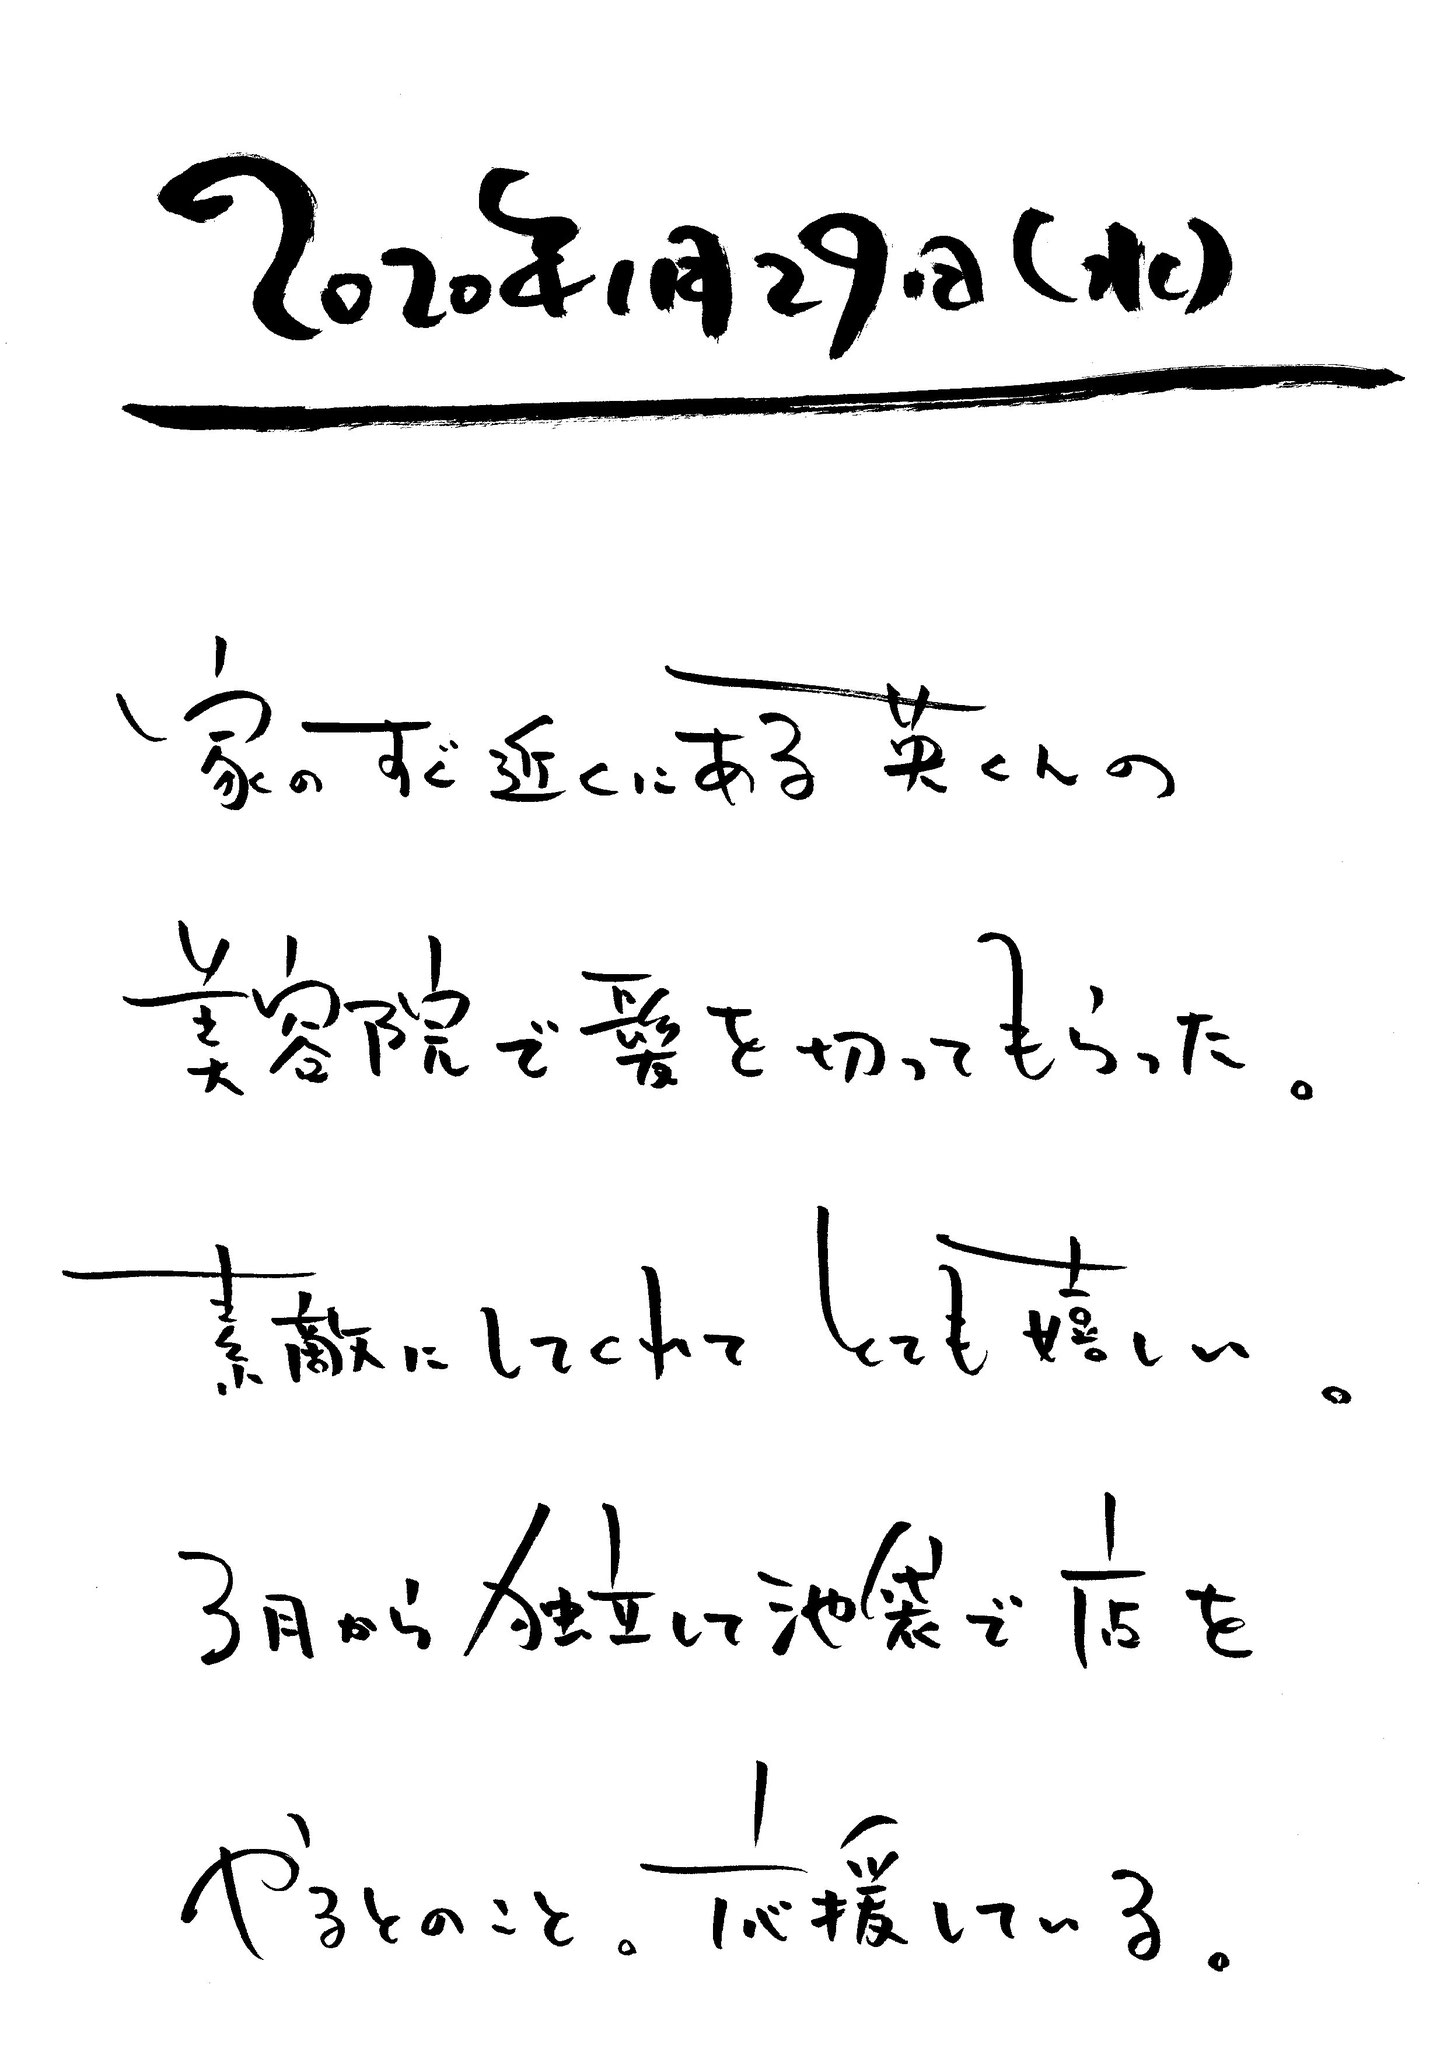 2020年1月29日(水)
家のすぐ近くにある英くんの
美容院で髪を切ってもらった。
素敵にしてくれてとても嬉しい。
3月から独立して池袋で店を
やるとのこと。応援している。